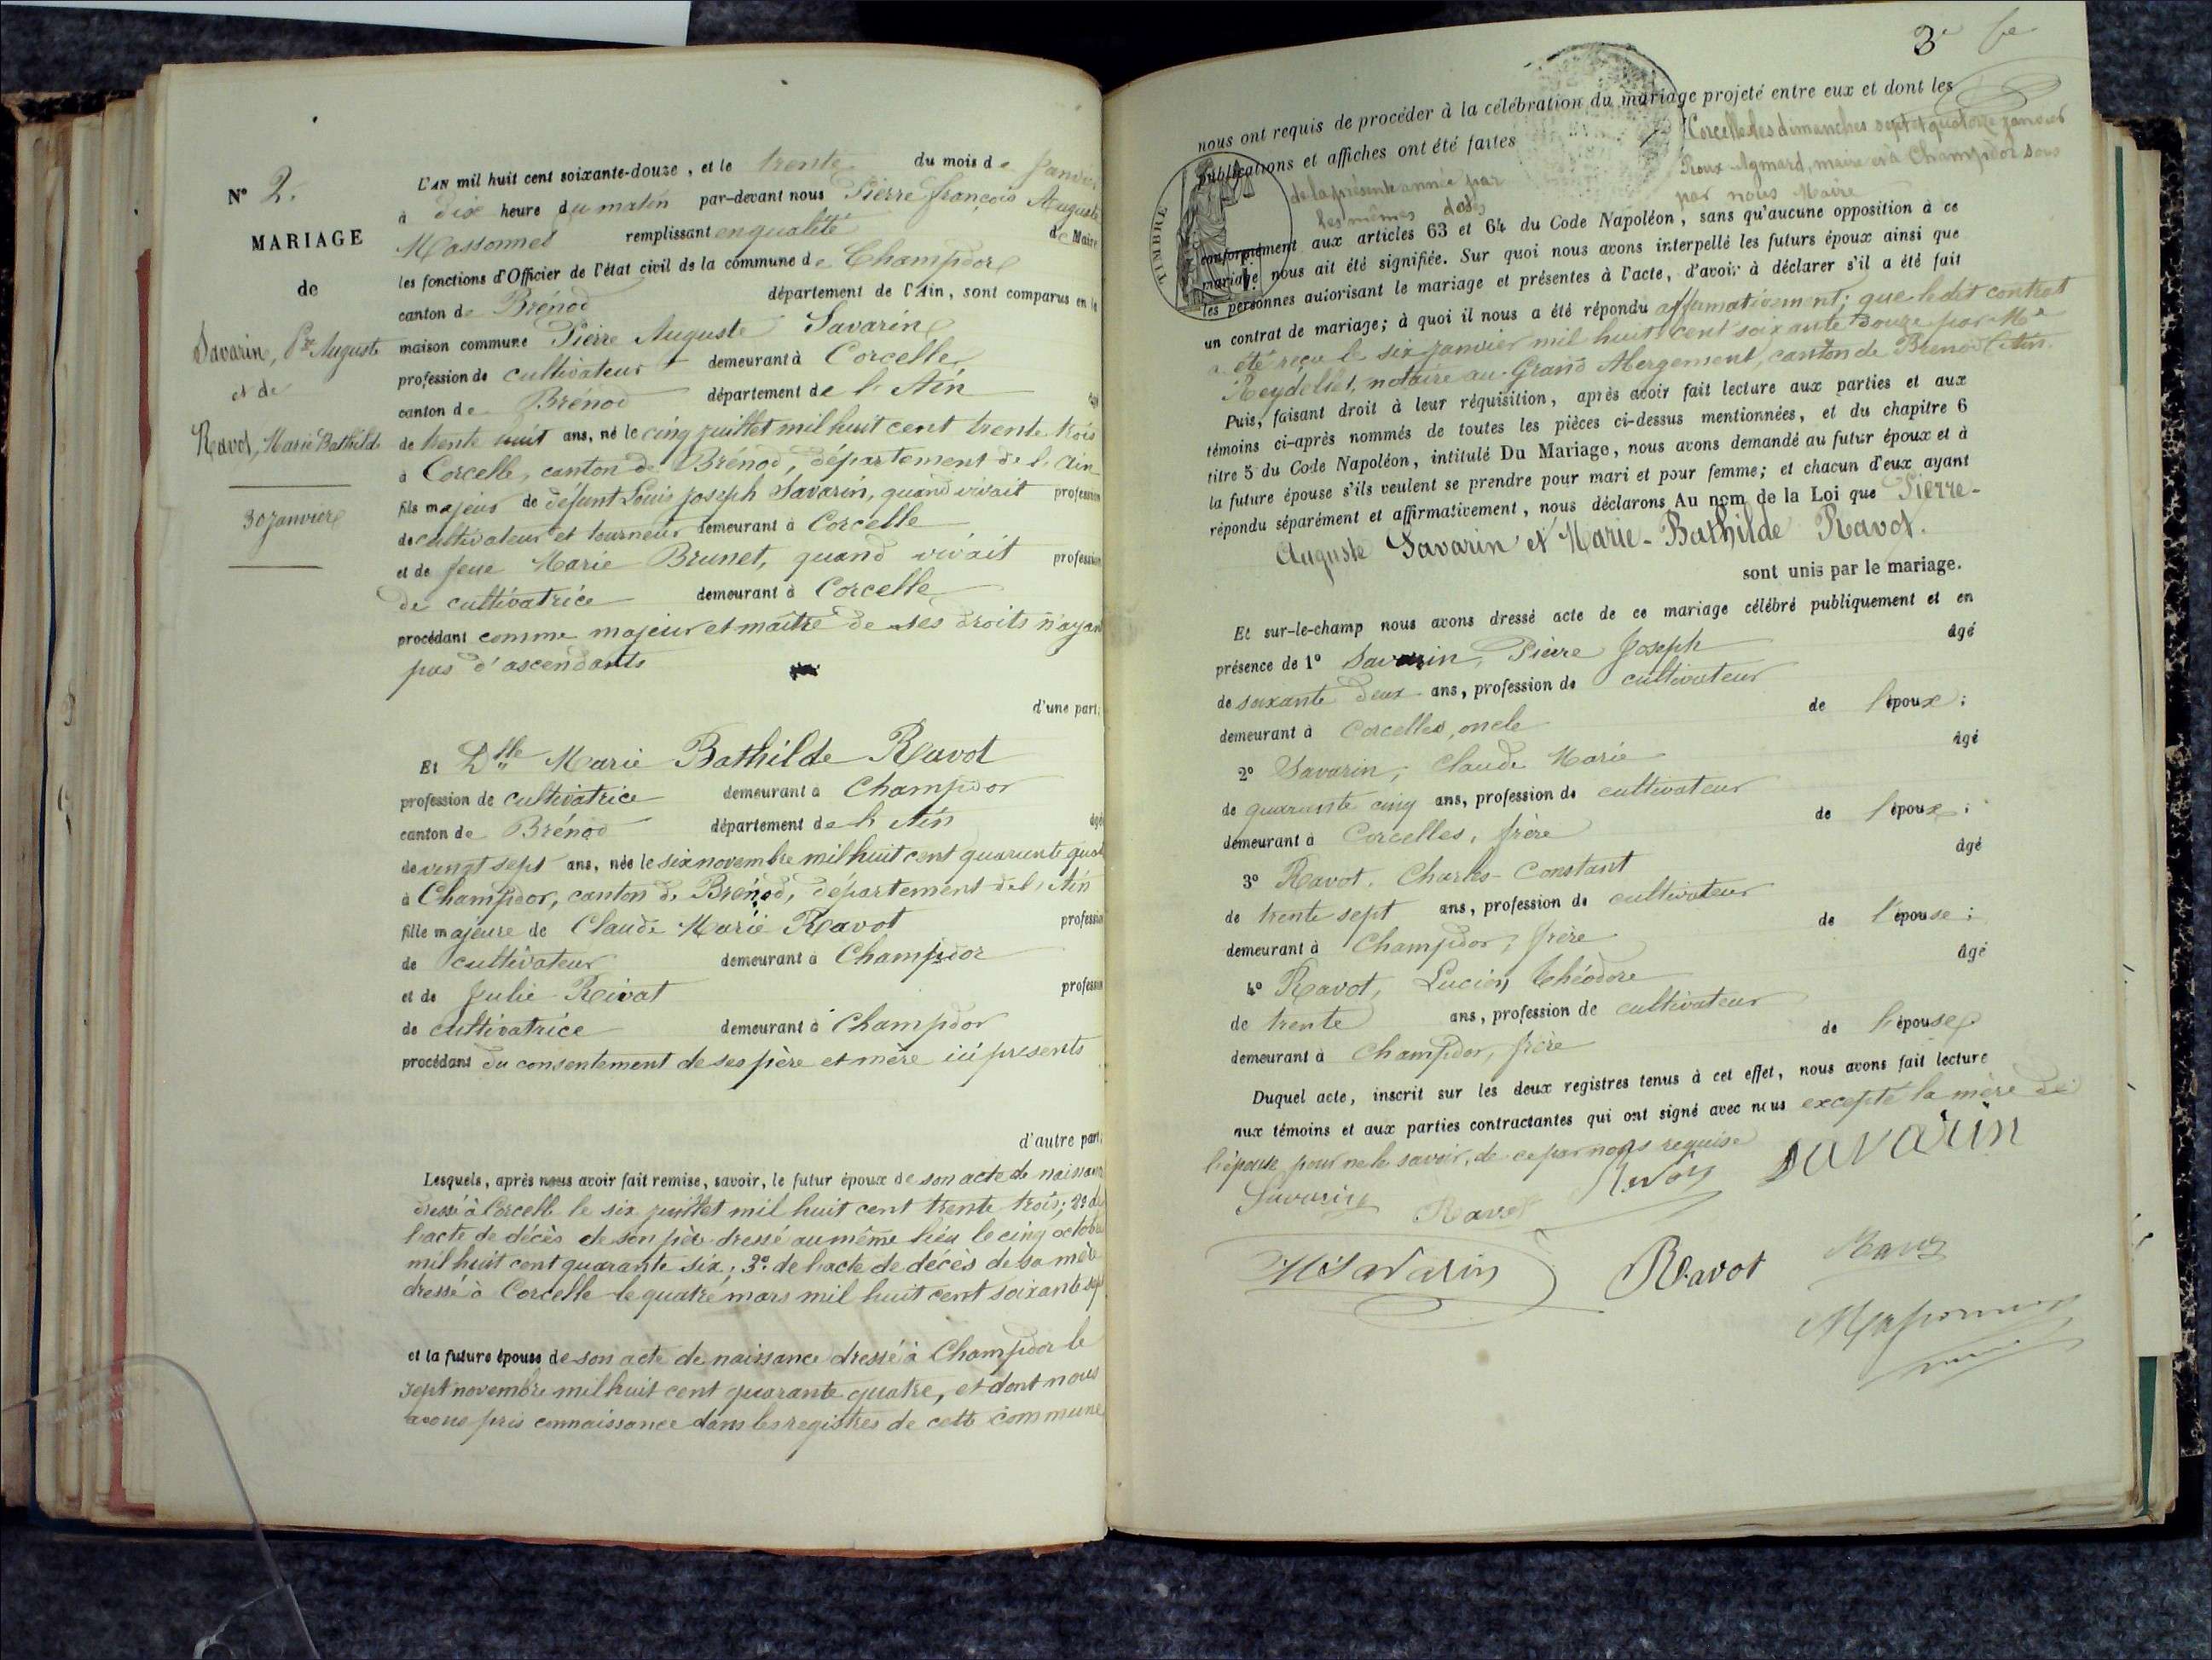 N° 2.
MARIAGE
de
Savarin, Pre Auguste
et de
Ravot, Marie Bathilde
30 janvier
L'AN mil huit cent soixante-douze, et le trente du mois de janvier
à dix heure du matin par-devant nous Pierre françois Auguste
Massonnet remplissant en qualité de Maire
les fonctions d'Officier de l'état civil de la commune de Champdor
canton de Brénod département de l'Ain, sont comparus en la
maison commune Pierre Auguste Savarin
profession de cultivateur demeurant à Corcelle
canton de Brénod département de l'Ain âgé
de trente huit ans, né le cinq juillet mil huit cent trente trois
à Corcelle, canton de Brénod, département de l'Ain
fils majeur de défunt Louis joseph Savarin, quand vivait profession
de cultivateur et tourneur demeurant à Corcelle
et de feue Marie Brunet, quand vivait profession
de cultivatrice demeurant à Corcelle
procédant comme majeur et maître de ses droits n'ayant
pas d'ascendants
d'une part;
Et Dlle Marie Bathilde Ravot
profession de cultivatrice demeurant à Champdor
canton de Brénod département de l'Ain âgé
de vingt sept ans, née le six novembre mil huit cent quarante quat
à Champdor, canton de Brénod, département de l'Ain
fille majeure de Claude Marie Ravot profession
de cultivateur demeurant à Champdor
et de Julie Rivat profession
de cultivatrice demeurant à Champdor
procédant du consentement de ses père et mère ici présents
d'autre part;
Lesquels, après nous avoir fait remise, savoir, le futur époux de son acte de naissance
dressé à Corcelle le six juillet mil huit cent trente trois; 2° de
l'acte de décès de son père dressé au même lieu le cinq octobre
mil huit cent quarante six; 3° de l'acte de décès de sa mère
dressé à Corcelle le quatre mars mil huit cent soixante sept
et la future épouse de son acte de naissance dressé à Champdor le
sept novembre mil huit cent quarante quatre, et dont nous
avons pris connaissance dans les registres de cette commune
3e
nous ont requis de procéder à la célébration du mariage projeté entre eux et dont les
publications et affiches ont été faites Corcelle les dimanches sept et quatorze janvier
de la présente année par Roux Aymard, maire et à Champdor sous
les mêmes dates par nous Maire
TIMBRE
conformément aux articles 63 et 64 du Code Napoléon, sans qu'aucune opposition à ce
mariage nous ait été signifiée. Sur quoi nous avons interpellé les futurs époux ainsi que
les personnes autorisant le mariage et présentes à l'acte, d'avoir à déclarer s'il a été fait
un contrat de mariage; à quoi il nous a été répondu affirmativement; que ledit contrat
a été reçu le six janvier mil huit cent soixante douze par Me
Reydellet, notaire au Grand Abergement, canton de Brénod (Ain.
Puis, faisant droit à leur réquisition, après avoir fait lecture aux parties et aux
témoins ci-après nommés de toutes les pièces ci-dessus mentionnées, et du chapitre 6
titre 5 du Code Napoléon, intitulé Du Mariage, nous avons demandé au futur époux et à
la future épouse s'ils veulent se prendre pour mari et pour femme; et chacun d'eux ayant
répondu séparément et affirmativement, nous déclarons Au nom de la Loi que Pierre-
Auguste Savarin et Marie-Bathilde Ravot.
sont unis par le mariage.
Et sur-le-champ nous avons dressé acte de ce mariage célébré publiquement et en
présence de 1° Savarin, Pierre Joseph âgé
de soixante deux ans, profession de cultivateur
demeurant à Corcelles, oncle de l'époux;
2° Savarin, Claude Marie âgé
de quarante cinq ans, profession de cultivateur
demeurant à Corcelles, frère de l'époux;
3° Ravot, Charles-Constant âgé
de trente sept ans, profession de cultivateur
demeurant à Champdor, frère de l'épouse;
4° Ravot, Lucien Théodore âgé
de trente ans, profession de cultivateur
demeurant à Champdor, frère de l'épouse
Duquel acte, inscrit sur les deux registres tenus à cet effet, nous avons fait lecture
aux témoins et aux parties contractantes qui ont signé avec nous excepté la mère de
l'épouse pour ne le savoir, de ce par nous requise
Savarin Ravot savarin
Savarin Ravot